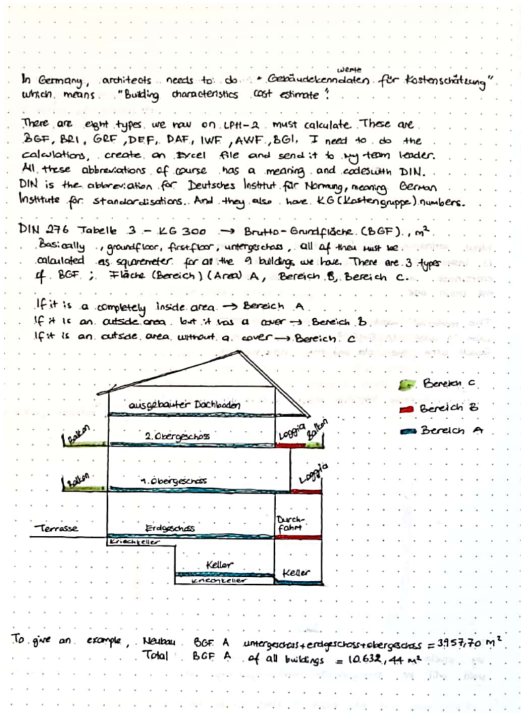 werte
In Germany, architects needs to do "Gebäudekenndaten für Kostenschätzung"
which means "Building characteristics cost estimate".
There are eight types we now on LPH-2 must calculate. These are
BGF, BRI, GRF, DEF, DAF, IWF, AWF, BGI, I need to do the
calculations, create an Excel file and send it to my team leader.
All these abbreviations of course has a meaning and codeswith DIN.
DIN is the abbreviation for Deutsches Institut für Normung, meaning German
Institute for standardisations. And they also have KG (Kostengruppe) numbers.
DIN 276 Tabelle 3 - KG 300 → Brutto-Grundfläche (BGF), m²
Basically, groundfloor, firstfloor, untergeschoss, all of them must be
calculated as squaremeter for all the 9 buildings we have. There are 3 types
of BGF ; Fläche (Bereich) (Area) A, Bereich B, Bereich C.
If it is a completely inside area → Bereich A
If it is an outside area but it has a cover → Bereich B
If it is an outside area without a cover → Bereich C
Bereich C
Bereich B
Bereich A
ausgebauter Dachboden
Balkon
2. Obergeschoss
Loggia
Balkon
Balkon
1. Obergeschoss
Loggia
Terrasse
Erdgeschoss
Durch-
fahrt
Kriechkeller
Keller
Keller
Kriechkeller
To give an example, Neubau BGF A untergeschoss+erdgeschoss+obergeschoss = 3.957,70 m²
Total BGF A of all buildings = 10.632,44 m²